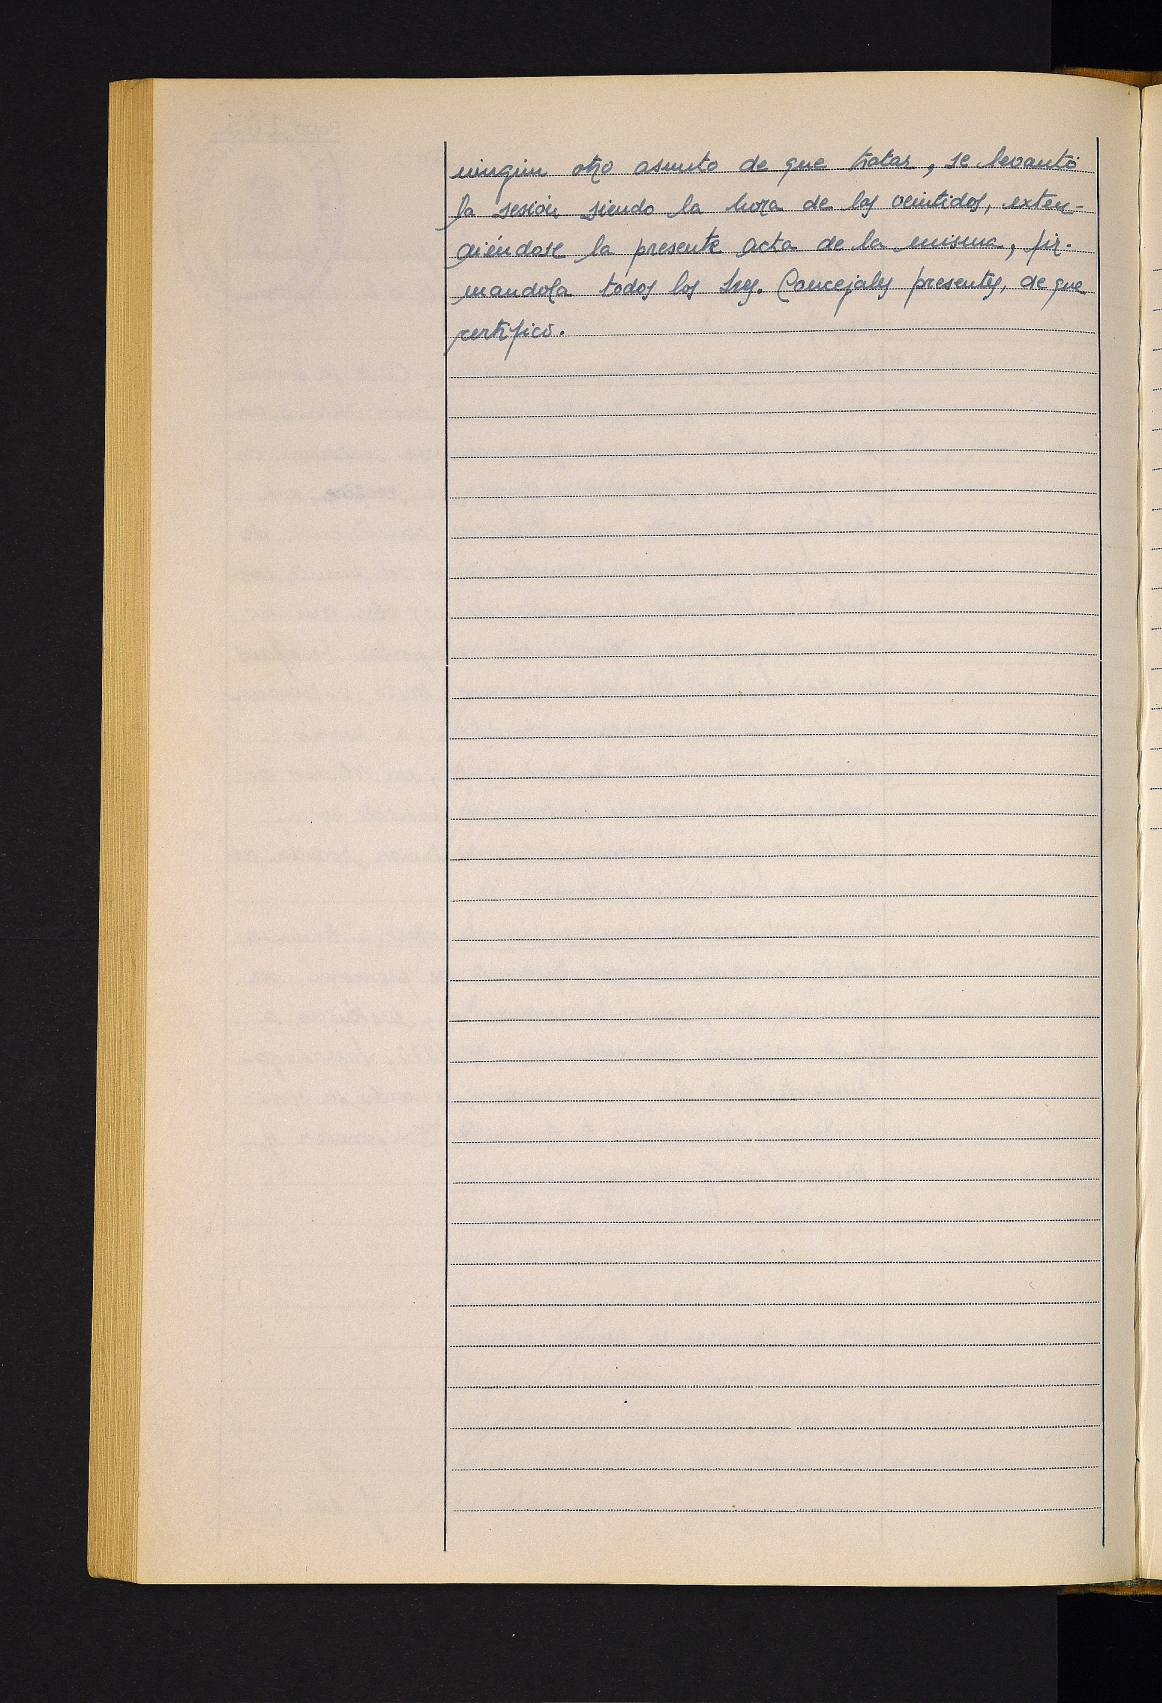 ningún otro asunto de que tratar, se levantó
la sesión siendo la hora de las veintidos, exten-
diéndose la presente acta de la misma, fir-
mandola todos los Sres. Concejales presentes, de que
certifico.